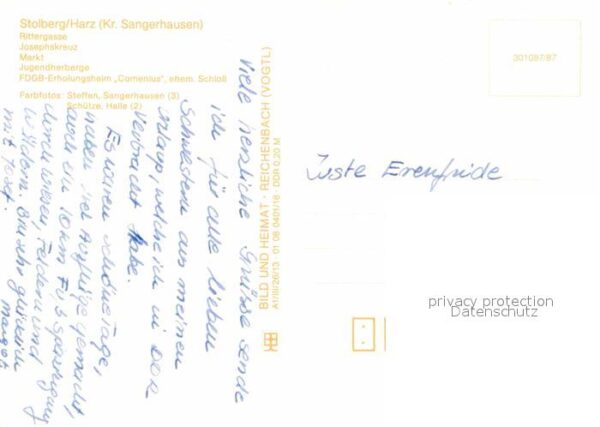 Stolberg/Harz (Kr. Sangerhausen)
Rittergasse
Josephskreuz
Markt
Jugendherberge
FDGB-Erholungsheim „Comenius“, ehem. Schloß
Farbfotos: Steffen, Sangerhausen (3)
Schütze, Halle (2)
301087/87
BILD UND HEIMAT · REICHENBACH (VOGTL)
A1/III/26/13 01 06 0401/16 DDR 0,20 M
Viele herzliche Grüsse sende
ich für alle lieben
Schwestern aus meinem
Urlaup, welche ich in DDR
verbracht habe.
Es waren schöne Tage,
haben viel Ausflüge gemacht,
auch ein 10 km
durch wiesen, Feldern und
Wäldern. Bin sehr
mit
Margot
Erenfride
privacy protection
Datenschutz